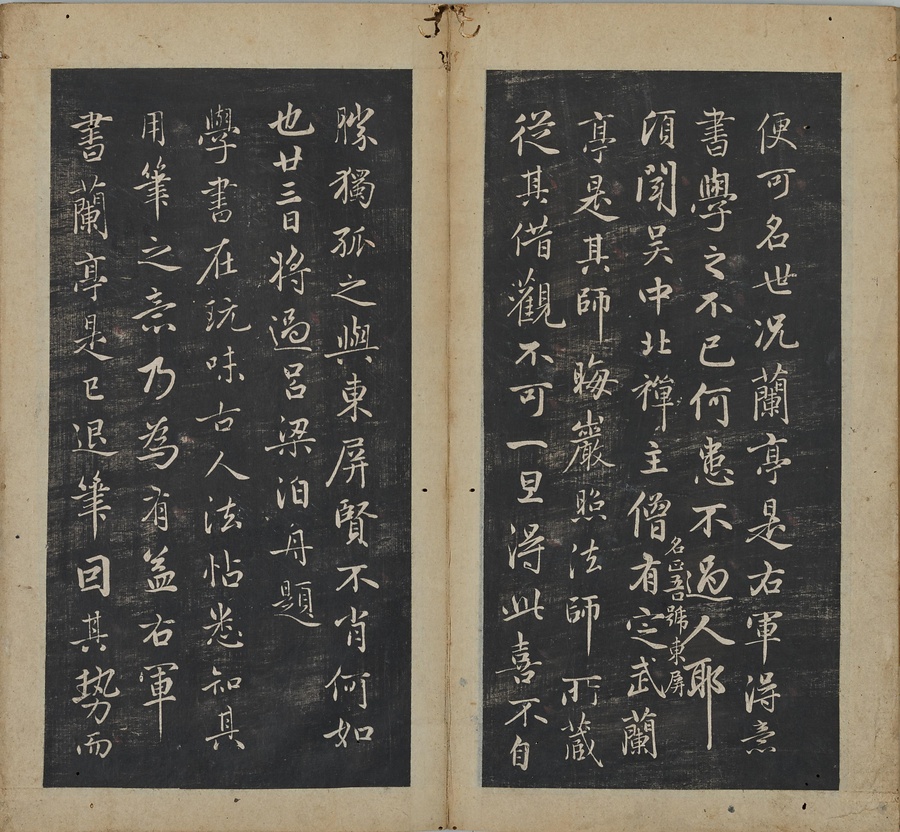 便可名世况蘭亭是右軍得意
書學之不已何患不過人耶
頃聞吴中北禪主僧有定武蘭
名正吾號東屏
亭是其師晦巖照法師所藏
從其借觀不可一旦得此喜不自
勝獨孤之與東屏賢不肖何如
也廿三日將過呂梁泊舟題
學書在玩味古人法帖悉知其
用筆之意乃為有益右軍
書蘭亭是已退筆因其勢而